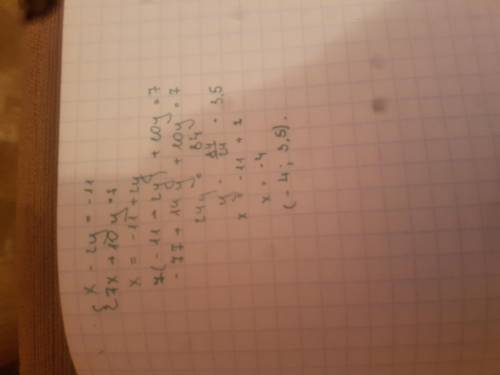 { x - 2y = -11
{ 7x + 10y = 7
x = -11 + 2y
7(-11 + 2y) + 10y = 7
-77 + 14y + 10y = 7
24y = 84
y = 84/24 = 3,5
x = -11 + 7
x = -4
(-4; 3,5).